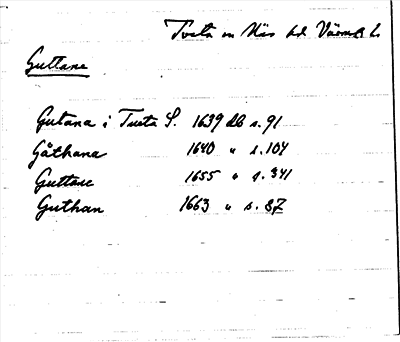 Tveta sn Näs hd Värml. l.
Guttane
Gutana i Tveta S. 1639 DB s. 91
Gåthana 1640 " s. 104
Guttane 1655 " s. 341
Guthan 1663 " s. 87